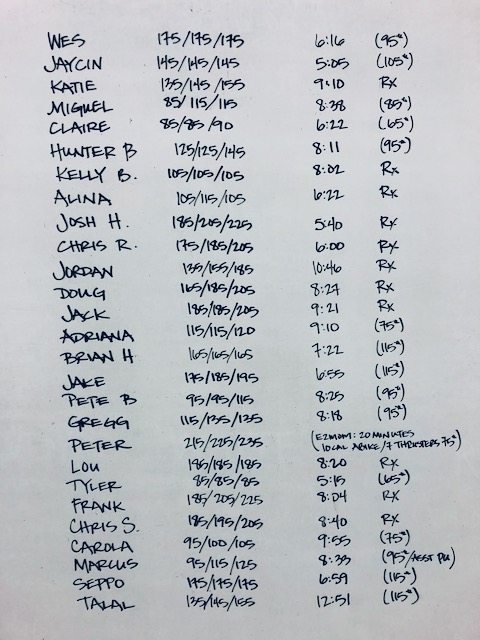 WES 175/175/175 6:16 (95#)
JAYCIN 145/145/145 5:05 (105#)
KATIE 135/145/155 9:10 RX
MIGUEL 85/115/115 8:38 (85#)
CLAIRE 85/85/90 6:22 (65#)
HUNTER B 125/125/145 8:11 (95#)
KELLY B. 105/105/105 8:02 RX
ALINA 105/115/105 6:22 RX
JOSH H. 185/205/225 5:40 RX
CHRIS R. 175/185/205 6:00 RX
JORDAN 135/155/185 10:46 RX
DOUG 165/185/205 8:27 RX
JACK 185/185/205 9:21 RX
ADRIANA 115/115/120 9:10 (75#)
BRIAN H 165/165/165 7:22 (115#)
JAKE 175/185/195 6:55 (115#)
PETE B 95/95/115 8:25 (95#)
GREGG 115/135/135 8:18 (95#)
PETER 215/225/235 (E2MOM: 20 MINUTES
10 CAL ABIKE/7 THRUSTERS 75#)
LOU 185/185/185 8:20 RX
TYLER 85/85/85 5:15 (65#)
FRANK 185/205/225 8:04 RX
CHRIS S. 185/195/205 8:40 RX
CAROLA 95/100/105 9:55 (75#)
MARCUS 95/115/125 8:33 (95#/ASST PU)
SEPPO 175/175/175 6:59 (115#)
TALAL 135/145/155 12:51 (115#)